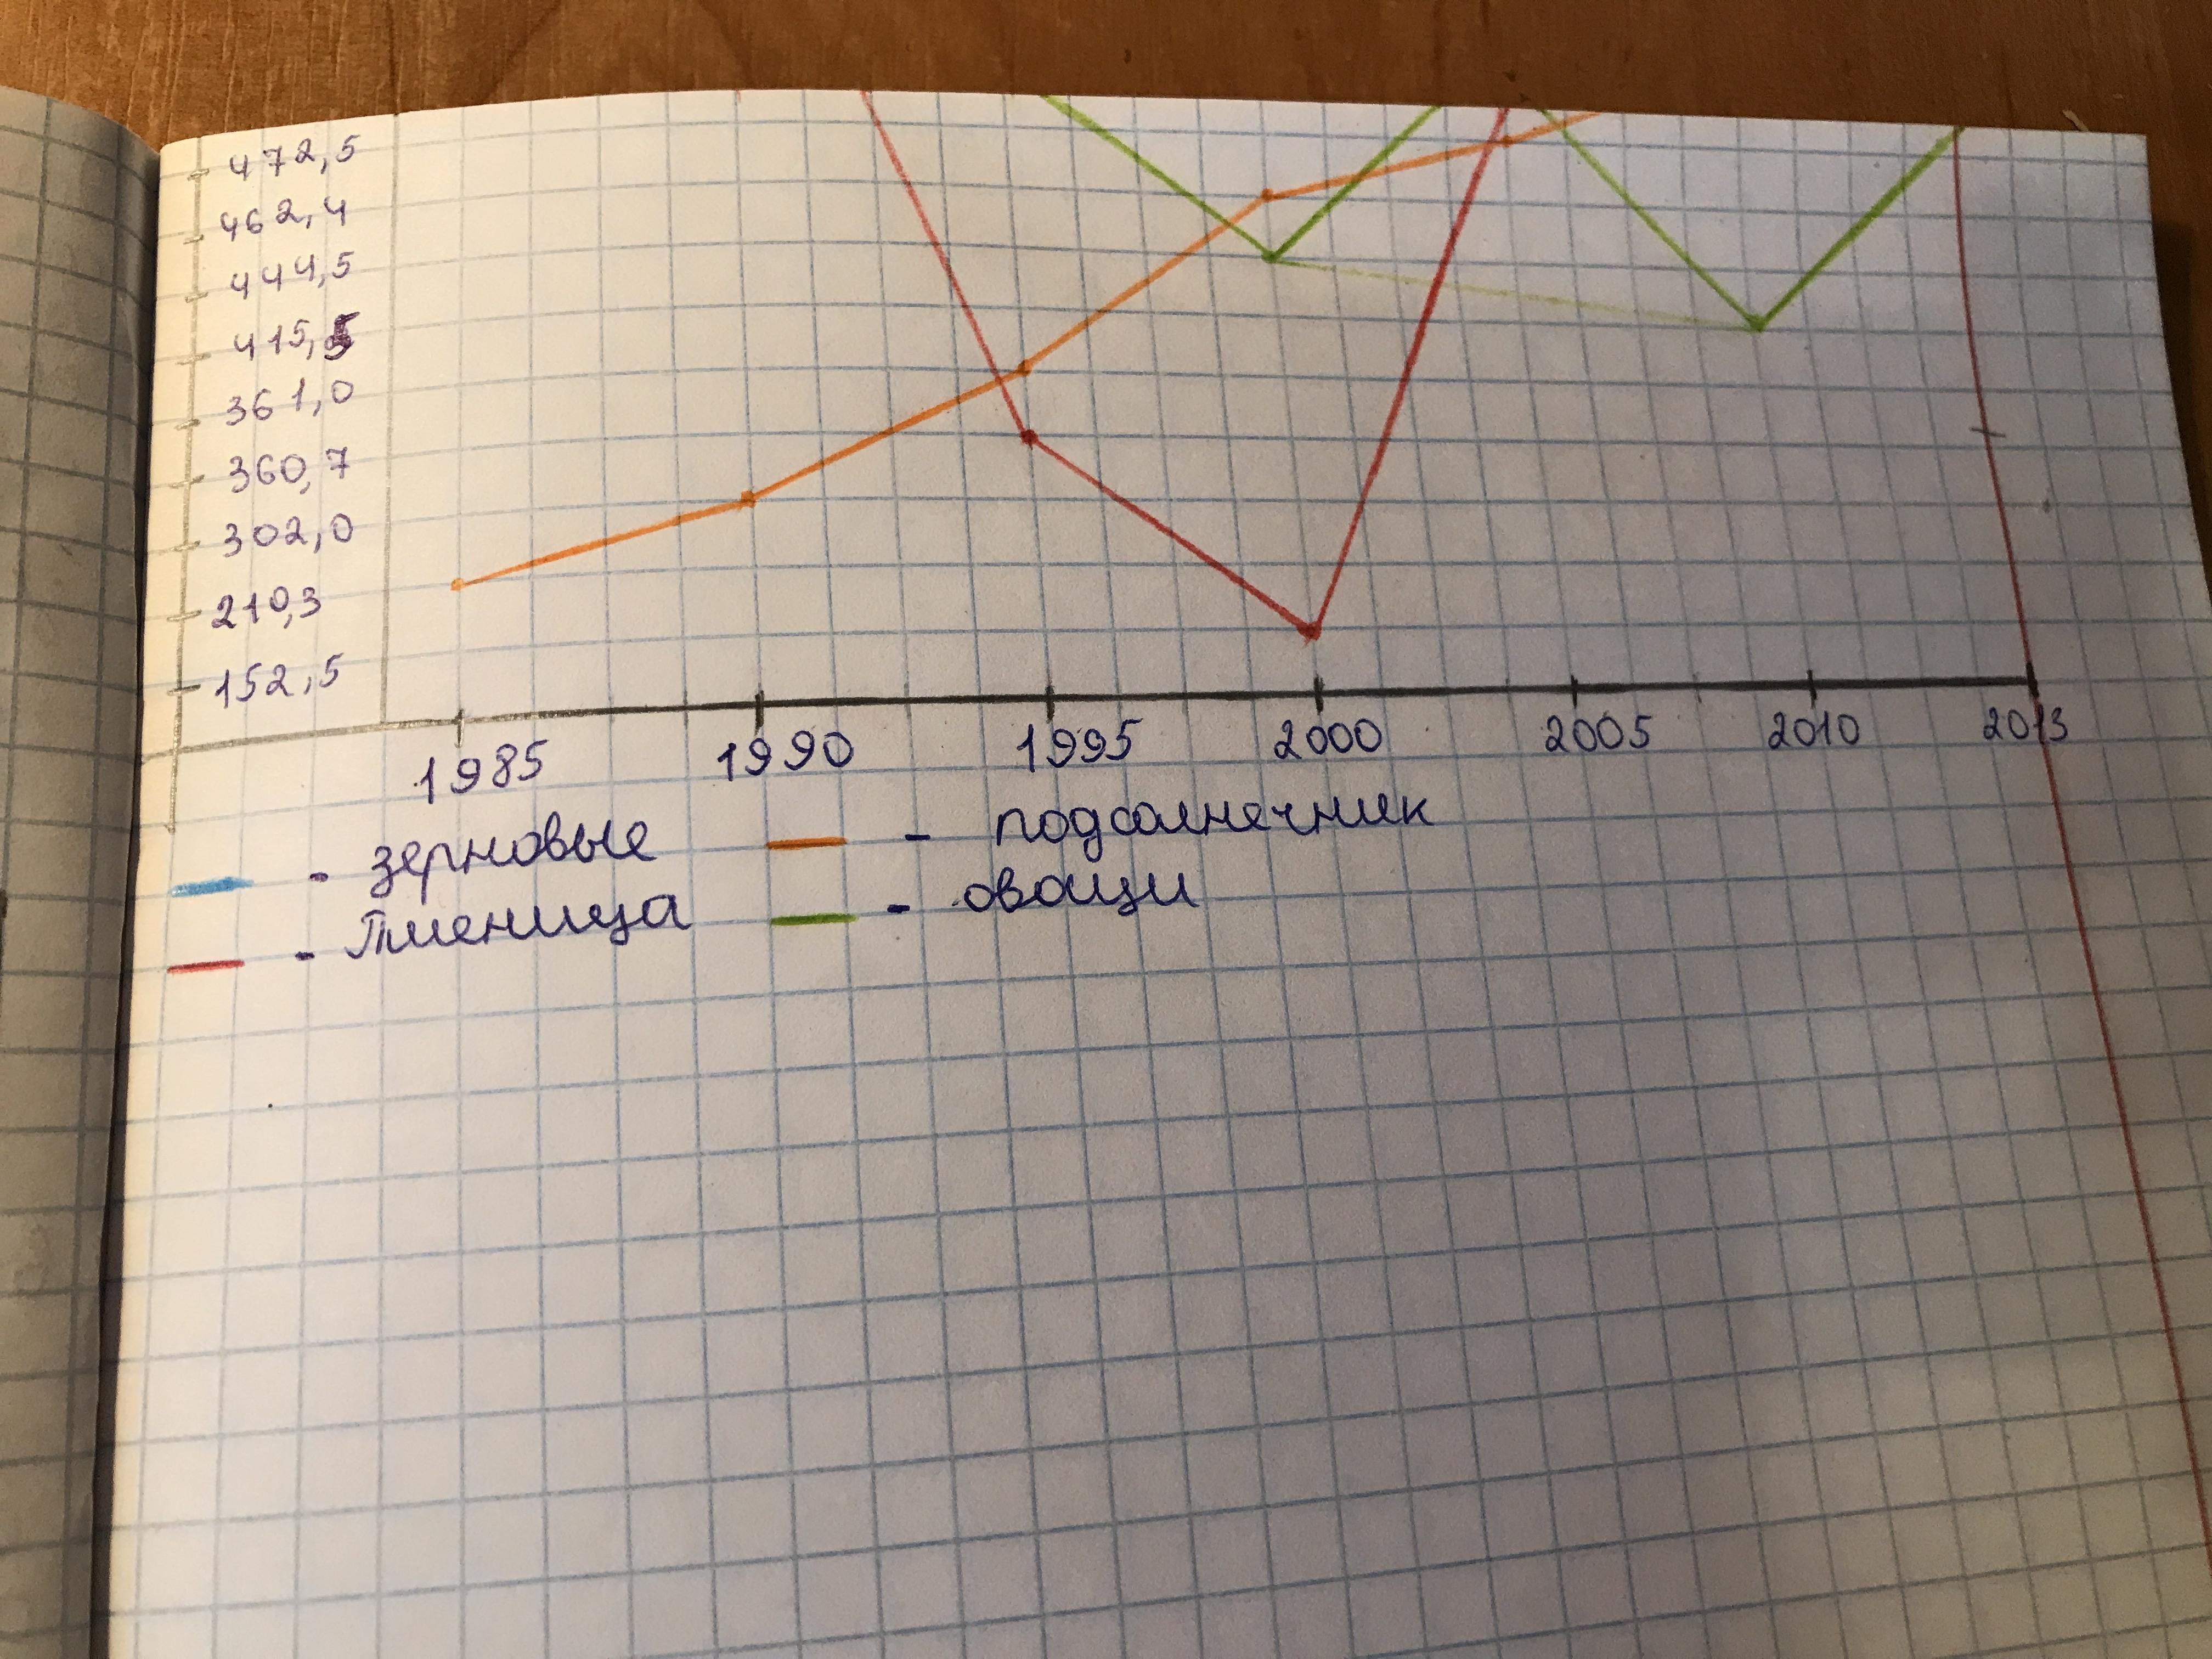 472,5
462,4
444,5
415,5
361,0
360,7
302,0
210,3
152,5
1985 1990 1995 2000 2005 2010 2013
- зерновые - подсолнечник
- Пшеница - овощи